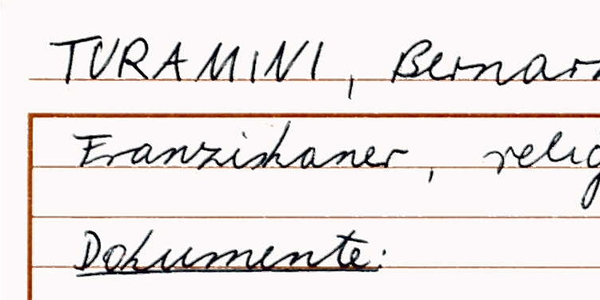 TURAMINI, Bernar
Franziskaner, relig
Dokumente: